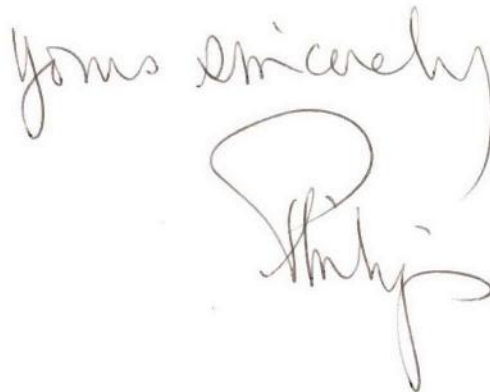 Yours sincerely
Philip